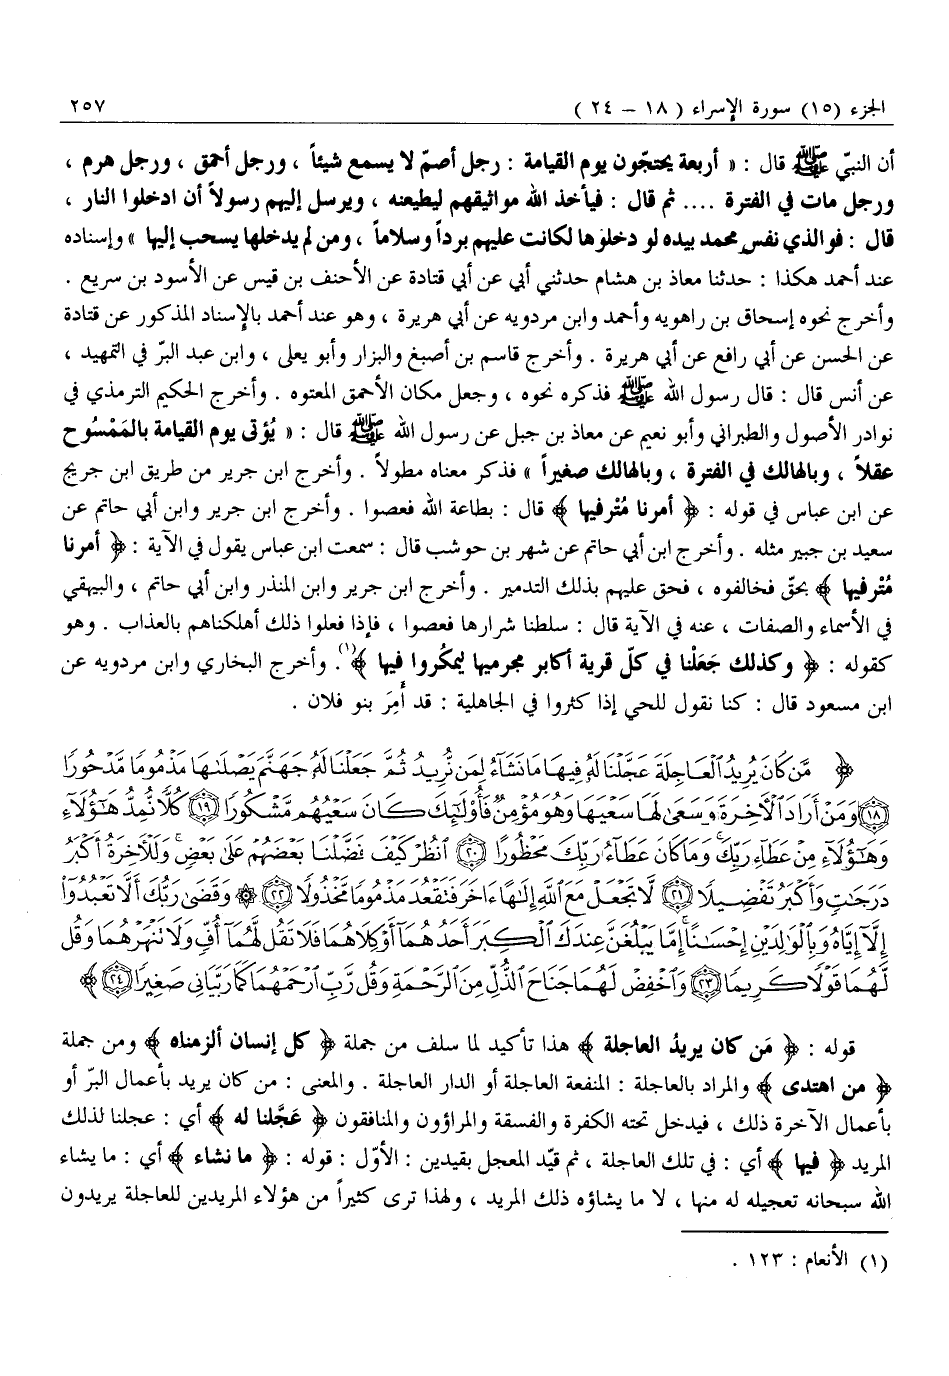 الجزء (١٥) سورة الإسراء ( ١٨ – ٢٤ ) ٢٥٧
أن النبيّ ﷺ قال : « أربعة يحتجّون يوم القيامة : رجل أصمّ لا يسمع شيئاً ، ورجل أحمق ، ورجل هرم ،
ورجل مات في الفترة .... ثم قال : فيأخذ الله مواثيقهم ليطيعنه ، ويرسل إليهم رسولاً أن ادخلوا النار ،
قال : فوالذي نفس محمد بيده لو دخلوها لكانت عليهم برداً وسلاماً ، ومن لم يدخلها يسحب إليها » وإسناده
عند أحمد هكذا : حدثنا معاذ بن هشام حدثني أبي عن أبي قتادة عن الأحنف بن قيس عن الأسود بن سريع .
وأخرج نحوه إسحاق بن راهويه وأحمد وابن مردويه عن أبي هريرة ، وهو عند أحمد بالإسناد المذكور عن قتادة
عن الحسن عن أبي رافع عن أبي هريرة . وأخرج قاسم بن أصبغ والبزار وأبو يعلى ، وابن عبد البرّ في التمهيد ،
عن أنس قال : قال رسول الله ﷺ فذكره نحوه ، وجعل مكان الأحمق المعتوه . وأخرج الحكيم الترمذي في
نوادر الأصول والطبراني وأبو نعيم عن معاذ بن جبل عن رسول الله ﷺ قال : « يُؤتى يوم القيامة بالمَمْسُوح
عقلاً ، وبالهالك في الفترة ، وبالهالك صغيراً » فذكر معناه مطولاً . وأخرج ابن جرير من طريق ابن جريج
عن ابن عباس في قوله : ﴿ أمرنا مُتْرفيها ﴾ قال : بطاعة الله فعصوا . وأخرج ابن جرير وابن أبي حاتم عن
سعيد بن جبير مثله . وأخرج ابن أبي حاتم عن شهر بن حوشب قال : سمعت ابن عباس يقول في الآية : ﴿ أمرنا
مُتْرفيها ﴾ بحقّ فخالفوه ، فحق عليهم بذلك التدمير . وأخرج ابن جرير وابن المنذر وابن أبي حاتم ، والبيهقي
في الأسماء والصفات ، عنه في الآية قال : سلطنا شرارها فعصوا ، فإذا فعلوا ذلك أهلكناهم بالعذاب . وهو
كقوله : ﴿ وكذلك جَعَلْنا في كلّ قرية أكابر مجرميها ليمكُروا فيها ﴾(١). وأخرج البخاري وابن مردويه عن
ابن مسعود قال : كنا نقول للحي إذا كثروا في الجاهلية : قد أَمِرَ بنو فلان .
﴿ مَّن كَانَ يُرِيدُ ٱلْعَاجِلَةَ عَجَّلْنَا لَهُۥ فِيهَا مَا نَشَآءُ لِمَن نُّرِيدُ ثُمَّ جَعَلْنَا لَهُۥ جَهَنَّمَ يَصْلَىٰهَا مَذْمُومًا مَّدْحُورًا
١٨ وَمَنْ أَرَادَ ٱلْأَخِرَةَ وَسَعَىٰ لَهَا سَعْيَهَا وَهُوَ مُؤْمِنٌ فَأُوْلَٰٓئِكَ كَانَ سَعْيُهُم مَّشْكُورًا ١٩ كُلًّا نُّمِدُّ هَٰٓؤُلَآءِ
وَهَٰٓؤُلَآءِ مِنْ عَطَآءِ رَبِّكَ ۚ وَمَا كَانَ عَطَآءُ رَبِّكَ مَحْظُورًا ٢٠ ٱنظُرْ كَيْفَ فَضَّلْنَا بَعْضَهُمْ عَلَىٰ بَعْضٍ ۚ وَلَلْأَخِرَةُ أَكْبَرُ
دَرَجَٰتٍ وَأَكْبَرُ تَفْضِيلًا ٢١ لَّا تَجْعَلْ مَعَ ٱللَّهِ إِلَٰهًا ءَاخَرَ فَتَقْعُدَ مَذْمُومًا مَّخْذُولًا ٢٢ ۞ وَقَضَىٰ رَبُّكَ أَلَّا تَعْبُدُوٓا۟
إِلَّآ إِيَّاهُ وَبِٱلْوَٰلِدَيْنِ إِحْسَٰنًا ۚ إِمَّا يَبْلُغَنَّ عِندَكَ ٱلْكِبَرَ أَحَدُهُمَآ أَوْ كِلَاهُمَا فَلَا تَقُل لَّهُمَآ أُفٍّ وَلَا تَنْهَرْهُمَا وَقُل
لَّهُمَا قَوْلًا كَرِيمًا ٢٣ وَٱخْفِضْ لَهُمَا جَنَاحَ ٱلذُّلِّ مِنَ ٱلرَّحْمَةِ وَقُل رَّبِّ ٱرْحَمْهُمَا كَمَا رَبَّيَانِى صَغِيرًا ٢٤ ﴾
قوله : ﴿ مَن كان يريدُ العاجلة ﴾ هذا تأكيد لما سلف من جملة ﴿ كل إنسان ألزمناه ﴾ ومن جملة
﴿ من اهتدى ﴾ والمراد بالعاجلة : المنفعة العاجلة أو الدار العاجلة . والمعنى : من كان يريد بأعمال البرّ أو
بأعمال الآخرة ذلك ، فيدخل تحته الكفرة والفسقة والمراؤون والمنافقون ﴿ عَجَّلنا له ﴾ أي : عجلنا لذلك
المريد ﴿ فيها ﴾ أي : في تلك العاجلة ، ثم قيّد المعجل بقيدين : الأوّل : قوله : ﴿ ما نشاء ﴾ أي : ما يشاء
الله سبحانه تعجيله له منها ، لا ما يشاؤه ذلك المريد ، ولهذا ترى كثيراً من هؤلاء المريدين للعاجلة يريدون
(١) الأنعام : ١٢٣ .